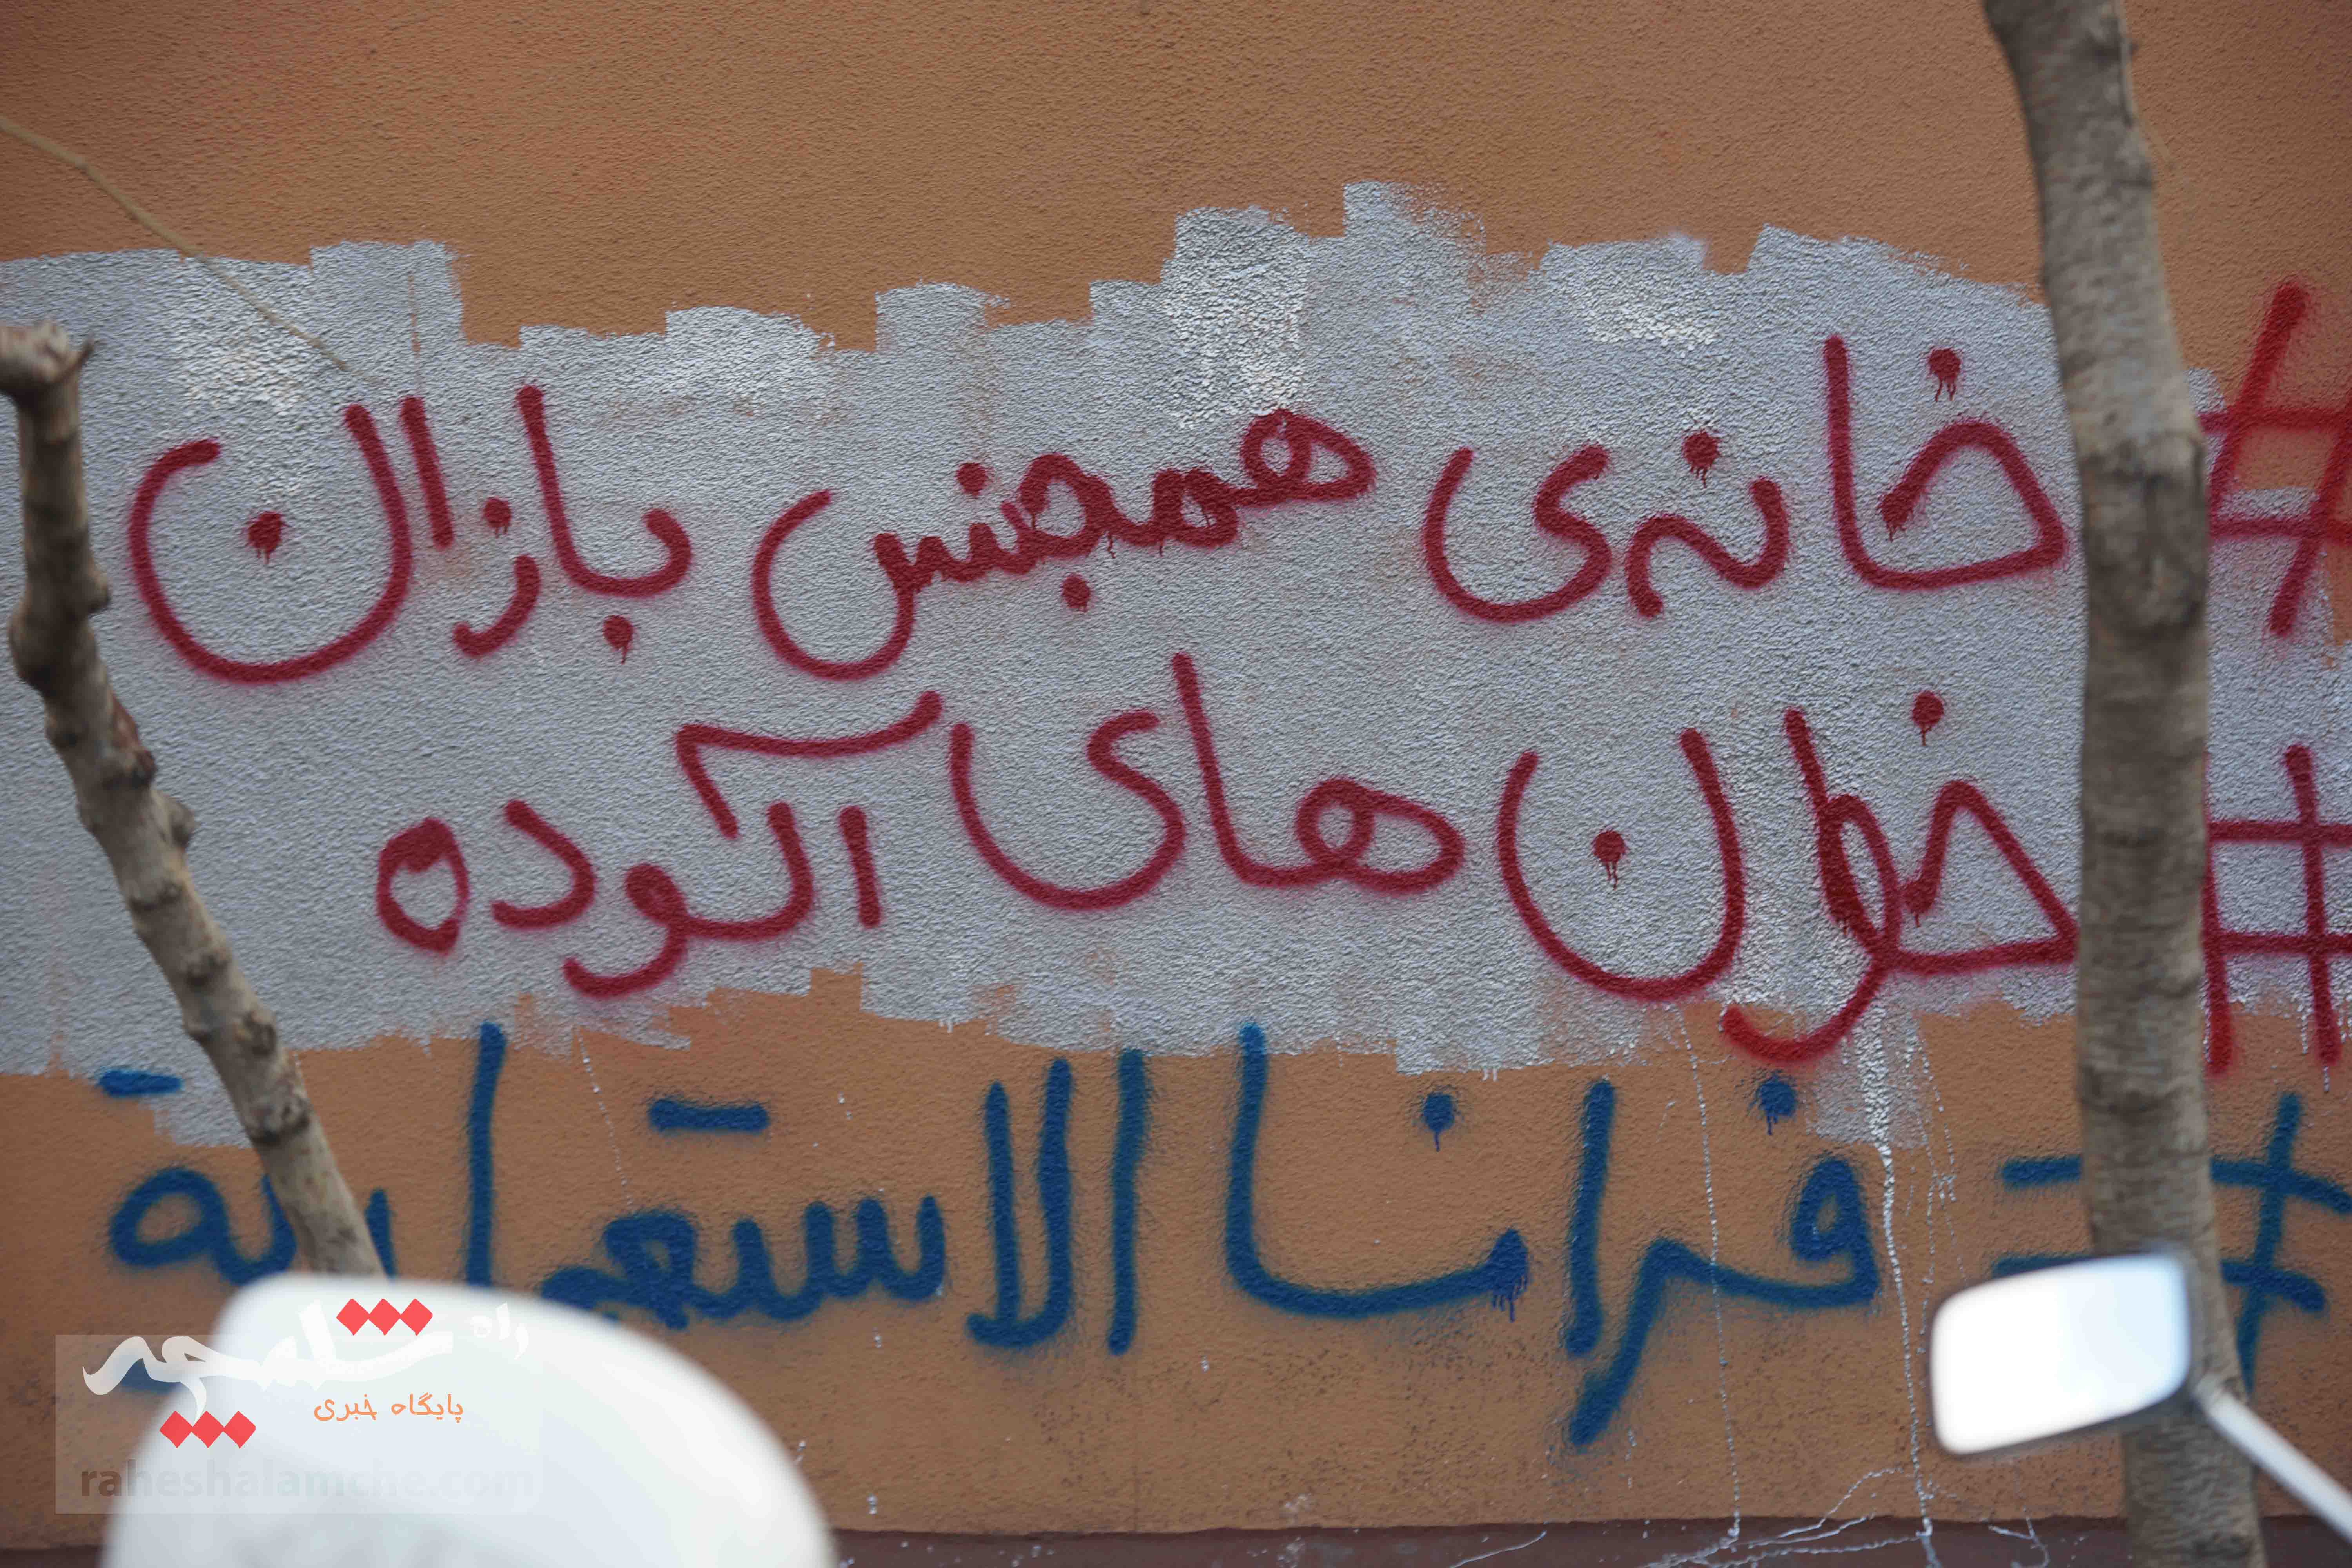 # خانه‌ی همجنس بازان
# خون های آلوده
# فرانسا الاستعماریة
راه شلمچه
پایگاه خبری
raheshalamche.com